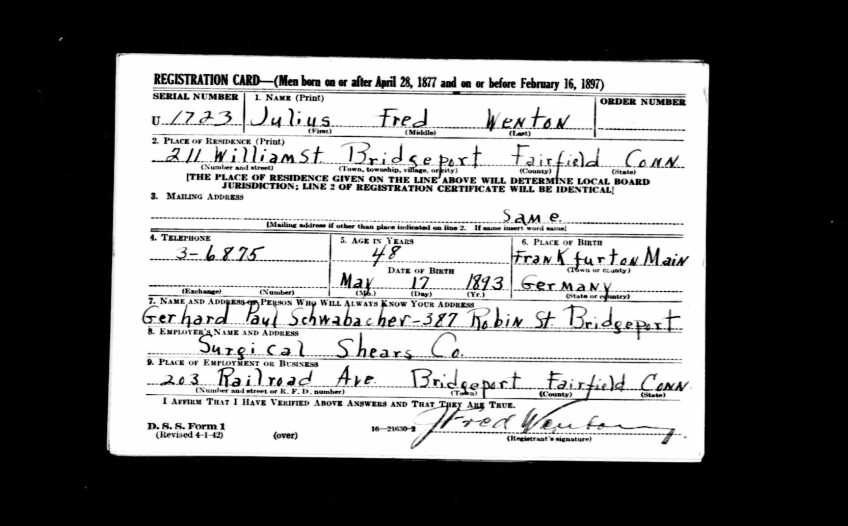 REGISTRATION CARD—(Men born on or after April 28, 1877 and on or before February 16, 1897)
SERIAL NUMBER 1. NAME (Print) ORDER NUMBER
U 1723 Julius Fred WENTON
(First) (Middle) (Last)
2. PLACE OF RESIDENCE (Print)
211 William St. Bridgeport Fairfield CONN.
(Number and street) (Town, township, village, or city) (County) (State)
[THE PLACE OF RESIDENCE GIVEN ON THE LINE ABOVE WILL DETERMINE LOCAL BOARD
JURISDICTION; LINE 2 OF REGISTRATION CERTIFICATE WILL BE IDENTICAL]
3. MAILING ADDRESS
Same.
[Mailing address if other than place indicated on line 2. If same insert word same]
4. TELEPHONE 5. AGE IN YEARS 6. PLACE OF BIRTH
3-6875 48 Frankfurt on Main
(Town or county)
DATE OF BIRTH
May 17 1893 Germany
(Exchange) (Number) (Mo.) (Day) (Yr.) (State or country)
7. NAME AND ADDRESS OF PERSON WHO WILL ALWAYS KNOW YOUR ADDRESS
Gerhard Paul Schwabacher-387 Robin St. Bridgeport
8. EMPLOYER'S NAME AND ADDRESS
Surgical Shears Co.
9. PLACE OF EMPLOYMENT OR BUSINESS
203 Railroad Ave. Bridgeport Fairfield CONN.
(Number and street or R. F. D. number) (Town) (County) (State)
I AFFIRM THAT I HAVE VERIFIED ABOVE ANSWERS AND THAT THEY ARE TRUE.
D. S. S. Form 1
(Revised 4-1-42) (over) 16—21630-2 J Fred Wenton
(Registrant's signature)